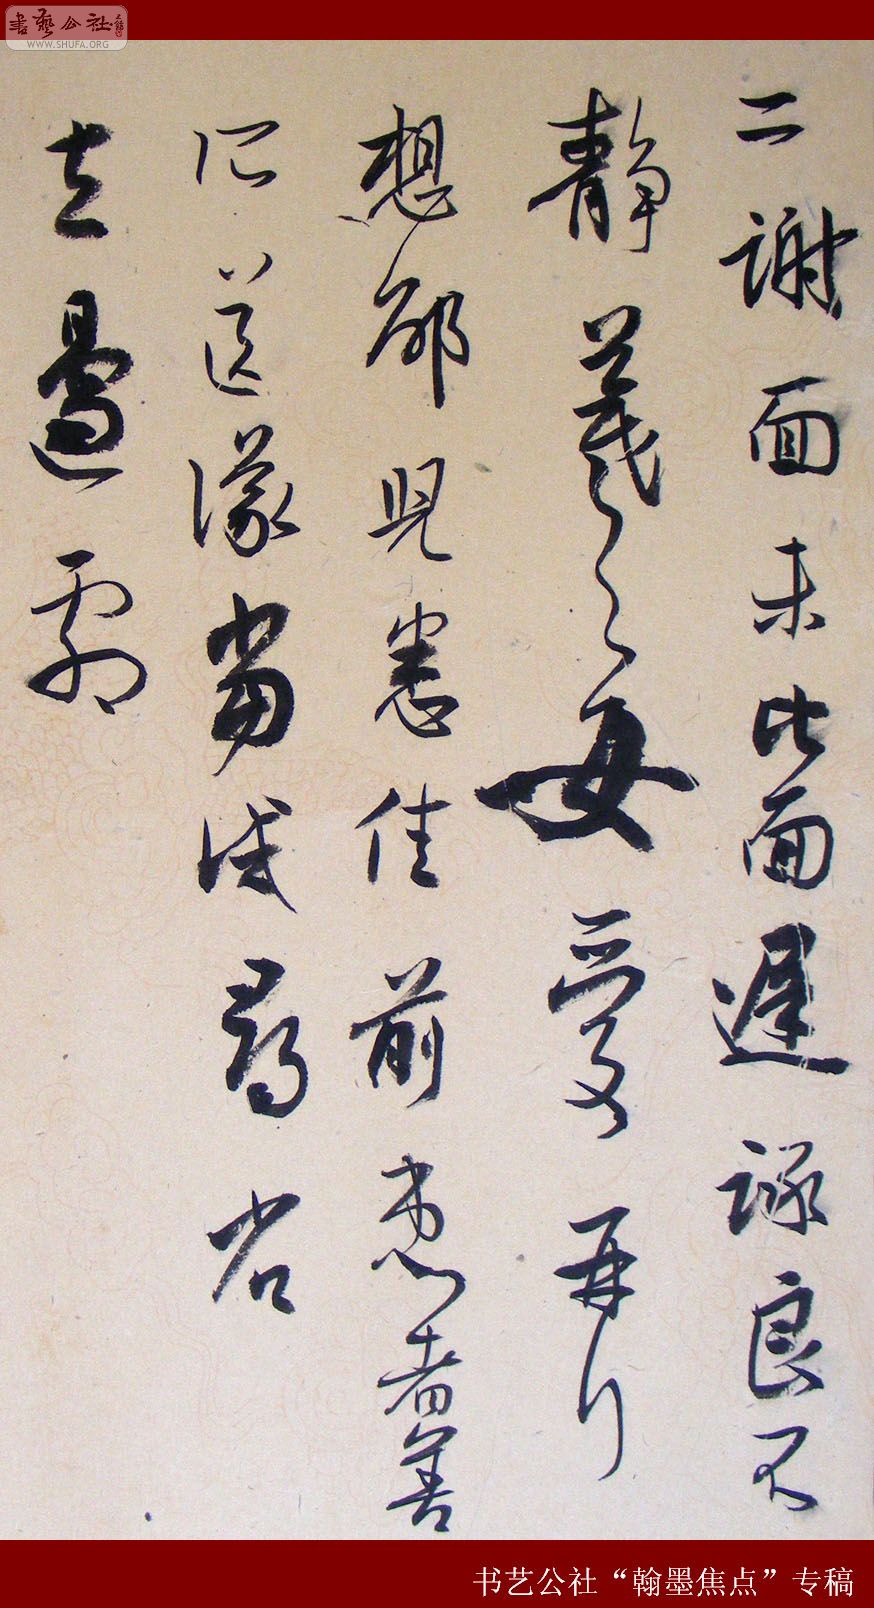 書藝公社
WWW.SHUFA.ORG
二謝面未比面遲詠良不
靜羲之女愛再拜
想邰兒悉佳前患者善
所送議當試尋省
左邊劇
书艺公社“翰墨焦点”专稿